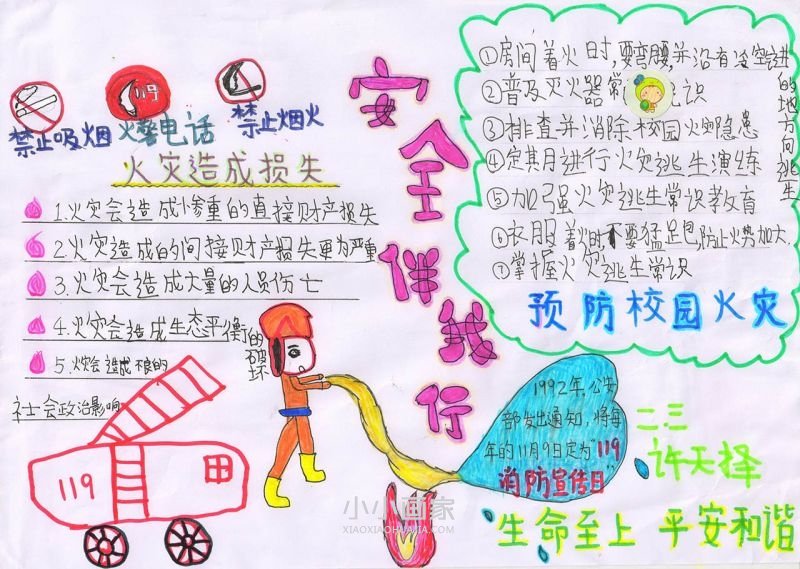 禁止吸烟
119
火警电话
禁止烟火
火灾造成损失
1.火灾会造成惨重的直接财产损失
2.火灾造成的间接财产损失更为严重
3.火灾会造成大量的人员伤亡
4.火灾会造成生态平衡的破坏
5.火灾会造成不良的
社会政治影响
119
安全伴我行
①房间着火时,要弯腰,并沿有冷空进的地方向逃生
②普及灭火器常识
③排查并消除校园火灾隐患
④定其月进行火灾逃生演练
⑤加强火灾逃生常识孝攵育
⑥衣服着火时不要猛足包,防止火势加大.
⑦掌握火灾逃生常识
预防校园火灾
1992年,公安
部发出通知,将每
年的11月9日定为"119
消防宣传日"
二三
许天择
生命至上 平安和谐
小小画家
XIAOXIAOHUAJIA.COM